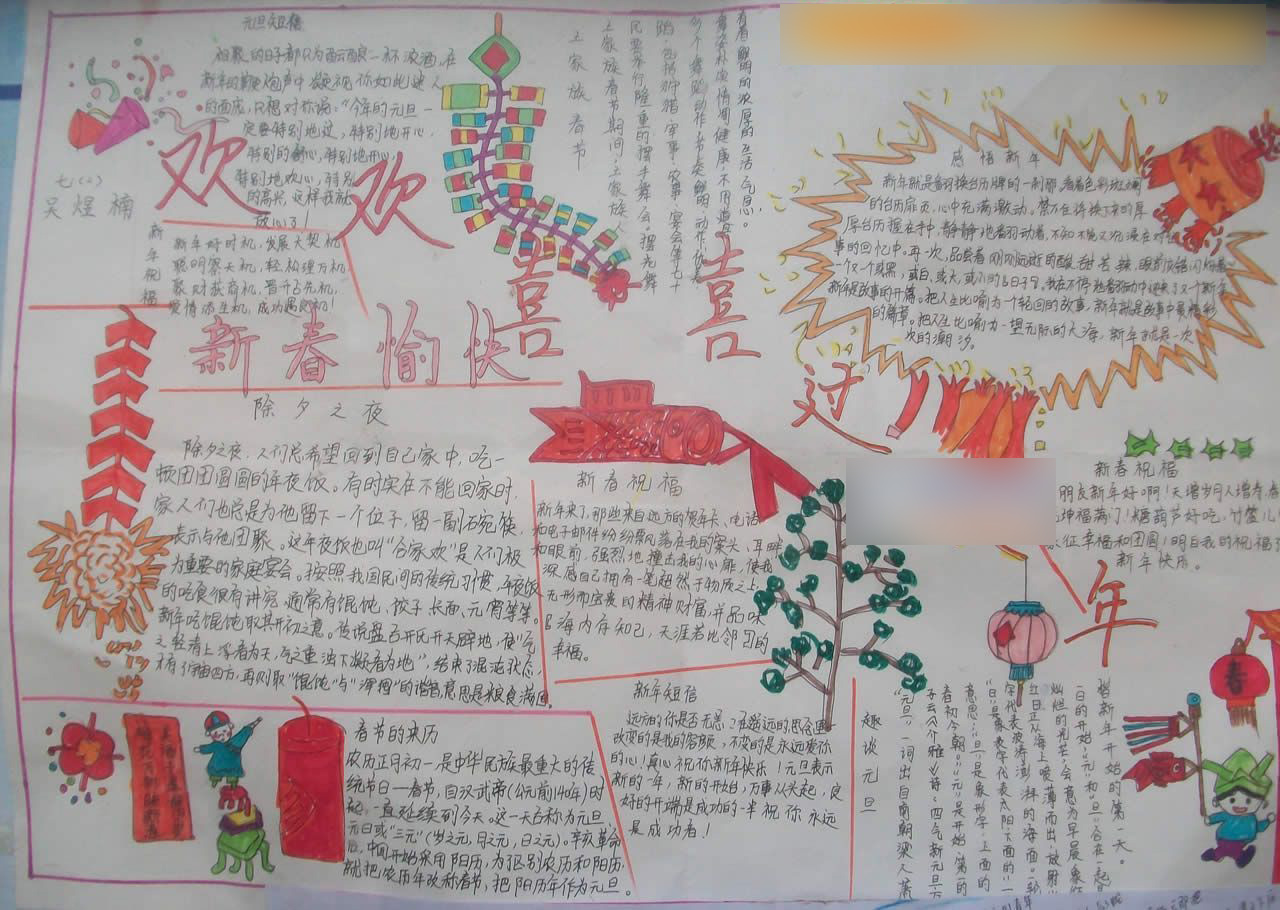 元旦短信
相聚的日子都只为酝酿一杯浓酒,在
新年的鞭炮声中凝视你如此迷人
的面庞,只想对你说:“今年的元旦一
定要特别地过,特别地开心,
特别的
特别地欢心,特别
的高兴,这样我就
放心了!
七(2)
吴煌楠
新年祝福
新年好时机,发展大契机
聪明察天机,轻松理万机
聚财获商机,晋升占先机
爱情添生机,成功遇良机!
欢欢喜喜过年
土家族春节
土家族春节期间,土家族人
民要举行隆重的摆手舞会。摆手舞
包括狩猎、军事、农事、宴会等七十
多个舞蹈动作,节奏鲜明,动作优美
舞姿朴
有着鲜明的浓厚的生活气息。
感悟新年
新年就是翻换台历牌的一刹那,看着色彩斑斓
的台历扉页,心中充满激动。禁不住将换下来的厚
厚台历握在手中,静静地翻动着,不知不觉又沉浸在对往
事的回忆中。再一次,品尝着刚刚远逝的酸甜苦辣,眼前
一个又一个或黑,或白,或大,或小的
新年是故事的开篇。把人生比喻为一个轮回的故事,新年就是故事中最精彩
的篇章。把人生比喻为一望无际的大海,新年就是一次
次的潮汐。
新春愉快
除夕之夜
除夕之夜,人们总希望回到自己家中,吃一
顿团团圆圆的年夜饭。有时实在不能回家时,
家人们也总是为他留下一个位子,留一副碗筷,
表示与他团聚。这年夜饭也叫“合家欢”是人们极
为重要的家庭宴会。按照我国民间的传统习惯,年夜饭
的吃食很有讲究,通常有馄饨、饺子、长面、元宵等等。
新年吃馄饨取其开初之意。传说盘古开氏开天辟地,使“气
之轻者上浮者为天,气之重浊下凝者为地”,结束了混沌状态,
才有了宇宙四方,再则取“馄饨”与“浑囤”的谐音,意思是粮食满囤。
新春祝福
新年来了,那些来自远方的贺年卡、电话
和电子邮件纷纷飘落在我的案头、耳畔
和眼前,强烈地撞击我的心扉,使我
深感自己拥有一笔超然于物质之上,
无形而宝贵的精神财富,并品味
海内存知己,天涯若比邻的
幸福。
新春祝福
朋友新年好啊!天增岁月人增寿,春
乾坤福满门!糖葫芦好吃,竹
象征幸福和团圆!明白我的祝福了
新年快乐。
春节的来历
农历正月初一,是中华民族最重大的传
统节日——春节,自汉武帝(公元前140年)时
起,一直延续到今天。这一天古称为元旦、
元日或“三元”(岁之元,月之元,日之元)。辛亥革命
后,中国开始采用阳历,为区别农历和阳历,
就把农历年改称春节,把阳历年作为元旦。
新年短信
远方的你是否无恙?遥远的思念里
改变的是我的容颜,不变的是永远爱你
的心!真心祝你新年快乐!元旦表示
新的一年,新的开始,万事从头起,良
好的开端是成功的一半,祝你永远
是成功者!
趣谈元旦
“元旦”一词出自南朝梁人萧
子云《介雅》诗:“四气新元旦,万
寿初今朝。”“元”是开始、第一的
意思;“旦”是象形字,上面的
“日”是象表字代表太阳,下面的“一”
字代表波涛澎湃的海面。一轮
红日正从海上喷薄而出,放射
灿烂的光芒,会意为早晨,象征
一日的开始。“元”和“旦”合在一起,
指新年开始的第一天。
春